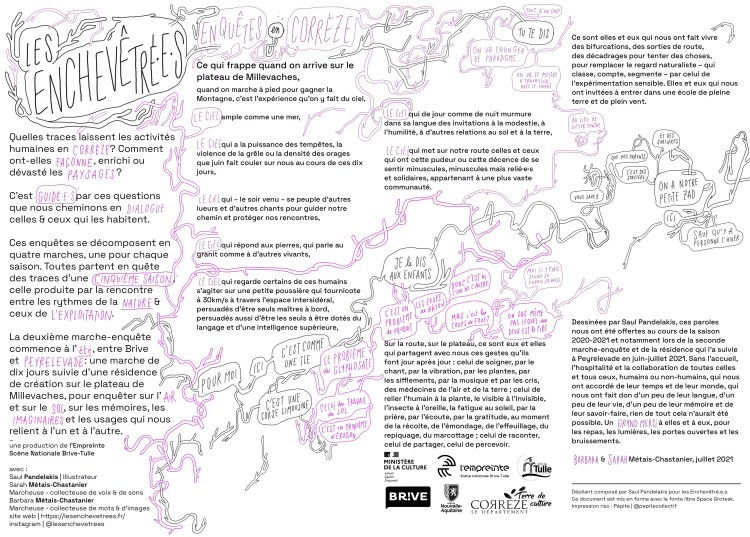 LES
ENCHEVÊTRÉ·E·S
Quelles traces laissent les activités
humaines en CORRÈZE? Comment
ont-elles FAÇONNÉ, enrichi ou
dévasté les PAYSAGES?
C'est GUIDÉ·E·S par ces questions
que nous cheminons en DIALOGUE
celles & ceux qui les habitent.
Ces enquêtes se décomposent en
quatre marches, une pour chaque
saison. Toutes partent en quête
des traces d'une CINQUIÈME SAISON,
celle produite par la rencontre
entre les rythmes de la NATURE &
ceux de L'EXPLOITATION.
La deuxième marche-enquête
commence à l'été, entre Brive
et PEYRELEVADE: une marche de
dix jours suivie d'une résidence
de création sur le plateau de
Millevaches, pour enquêter sur l'AIR
et sur le SOL, sur les mémoires, les
IMAGINAIRES et les usages qui nous
relient à l'un et à l'autre.
–
une production de l'Empreinte
Scène Nationale Brive-Tulle
avec :
Saul Pandelakis | Illustrateur
Sarah Métais-Chastanier
Marcheuse - collecteuse de voix & de sons
Barbara Métais-Chastanier
Marcheuse - collecteuse de mots & d'images
site web | https://lesenchevetrees.fr/
instagram | @lesenchevetrees
ENQUÊTES en CORRÈZE
Ce qui frappe quand on arrive sur le
plateau de Millevaches,
quand on marche à pied pour gagner la
Montagne, c'est l'expérience qu'on y fait du ciel,
LE CIEL ample comme une mer,
LE CIEL qui a la puissance des tempêtes, la
violence de la grêle ou la densité des orages
que juin fait couler sur nous au cours de ces dix
jours,
LE CIEL qui - le soir venu – se peuple d'autres
lueurs et d'autres chants pour guider notre
chemin et protéger nos rencontres,
LE CIEL qui répond aux pierres, qui parle au
granit comme à d'autres vivants,
LE CIEL qui regarde certains de ces humains
s'agiter sur une petite poussière qui tournicote
à 30km/s à travers l'espace intersidéral,
persuadés d'être seuls maîtres à bord,
persuadés aussi d'être les seuls à être dotés du
langage et d'une intelligence supérieure,
POUR MOI
ICI
C'EST COMME
UNE ÎLE
C'EST UNE
CORSE LIMOUSINE
LE PROBLÈME
DU GLYPHOSATE
CELUI DU TRAVAIL
DU SOL
C'EST UN PROBLÈME
D'ÉROSION
TU TE DIS
ON VA CHANGER
DE PARADIGME
LE CIEL qui de jour comme de nuit murmure
dans sa langue des invitations à la modestie, à
l'humilité, à d'autres relations au sol et à la terre,
LE CIEL qui met sur notre route celles et ceux
qui ont cette pudeur ou cette décence de se
sentir minuscules, minuscules mais relié·e·s
et solidaires, appartenant à une plus vaste
communauté.
JE LE DIS
AUX ENFANTS
C'EST UN
PROBLÈME
LES COUPS
DONC C'EST NI
MAIS
COUPS DE FUSIL
ON SAIT MÊME
DEUX EST LE PIRE
Sur la route, sur le plateau, ce sont eux et elles
qui partagent avec nous ces gestes qu'ils
font jour après jour : celui de soigner, par le
chant, par la vibration, par les plantes, par
les sifflements, par la musique et par les cris,
des médecines de l'air et de la terre ; celui de
relier l'humain à la plante, le visible à l'invisible,
l'insecte à l'oreille, la fatigue au soleil, par la
prière, par l'écoute, par la gratitude, au moment
de la récolte, de l'émondage, de l'effeuillage, du
repiquage, du marcottage ; celui de raconter,
celui de partager, celui de percevoir.
MINISTÈRE
DE LA CULTURE
l'empreinte
Scène nationale Brive-Tulle
Tulle
BR!VE
Nouvelle-
Aquitaine
CORRÈZE
LE DÉPARTEMENT
Terre de
culture
Ce sont elles et eux qui nous ont fait vivre
des bifurcations, des sorties de route,
des décadrages pour tenter des choses,
pour remplacer le regard naturaliste – qui
classe, compte, segmente – par celui de
l'expérimentation sensible. Elles et eux qui nous
ont invitées à entrer dans une école de pleine
terre et de plein vent.
AU LIEU DE
LUTTER CONTRE
VOUS SAVEZ
QUE DES PARENTS
C'EST DES
SORCIERS
ET DES
SORCIÈRES
ON A NOTRE
PETITE ZAD
ICI
SAUF QU'Y A
PERSONNE L'HIVER
Dessinées par Saul Pandelakis, ces paroles
nous ont été offertes au cours de la saison
2020-2021 et notamment lors de la seconde
marche-enquête et de la résidence qui l'a suivie
à Peyrelevade en juin-juillet 2021. Sans l'accueil,
l'hospitalité et la collaboration de toutes celles
et tous ceux, humains ou non-humains, qui nous
ont accordé de leur temps et de leur monde, qui
nous ont fait don d'un peu de leur langue, d'un
peu de leur vie, d'un peu de leur mémoire et de
leur savoir-faire, rien de tout cela n'aurait été
possible. Un GRAND MERCI à elles et à eux, pour
les repas, les lumières, les portes ouvertes et les
bruissements.
BARBARA & SARAH Métais-Chastanier, juillet 2021
Dépliant composé par Saul Pandelakis pour les Enchevêtré.e.s.
Ce document est mis en forme avec la fonte libre Space Grotesk.
Impression riso : Pépite | @pepitecollectif